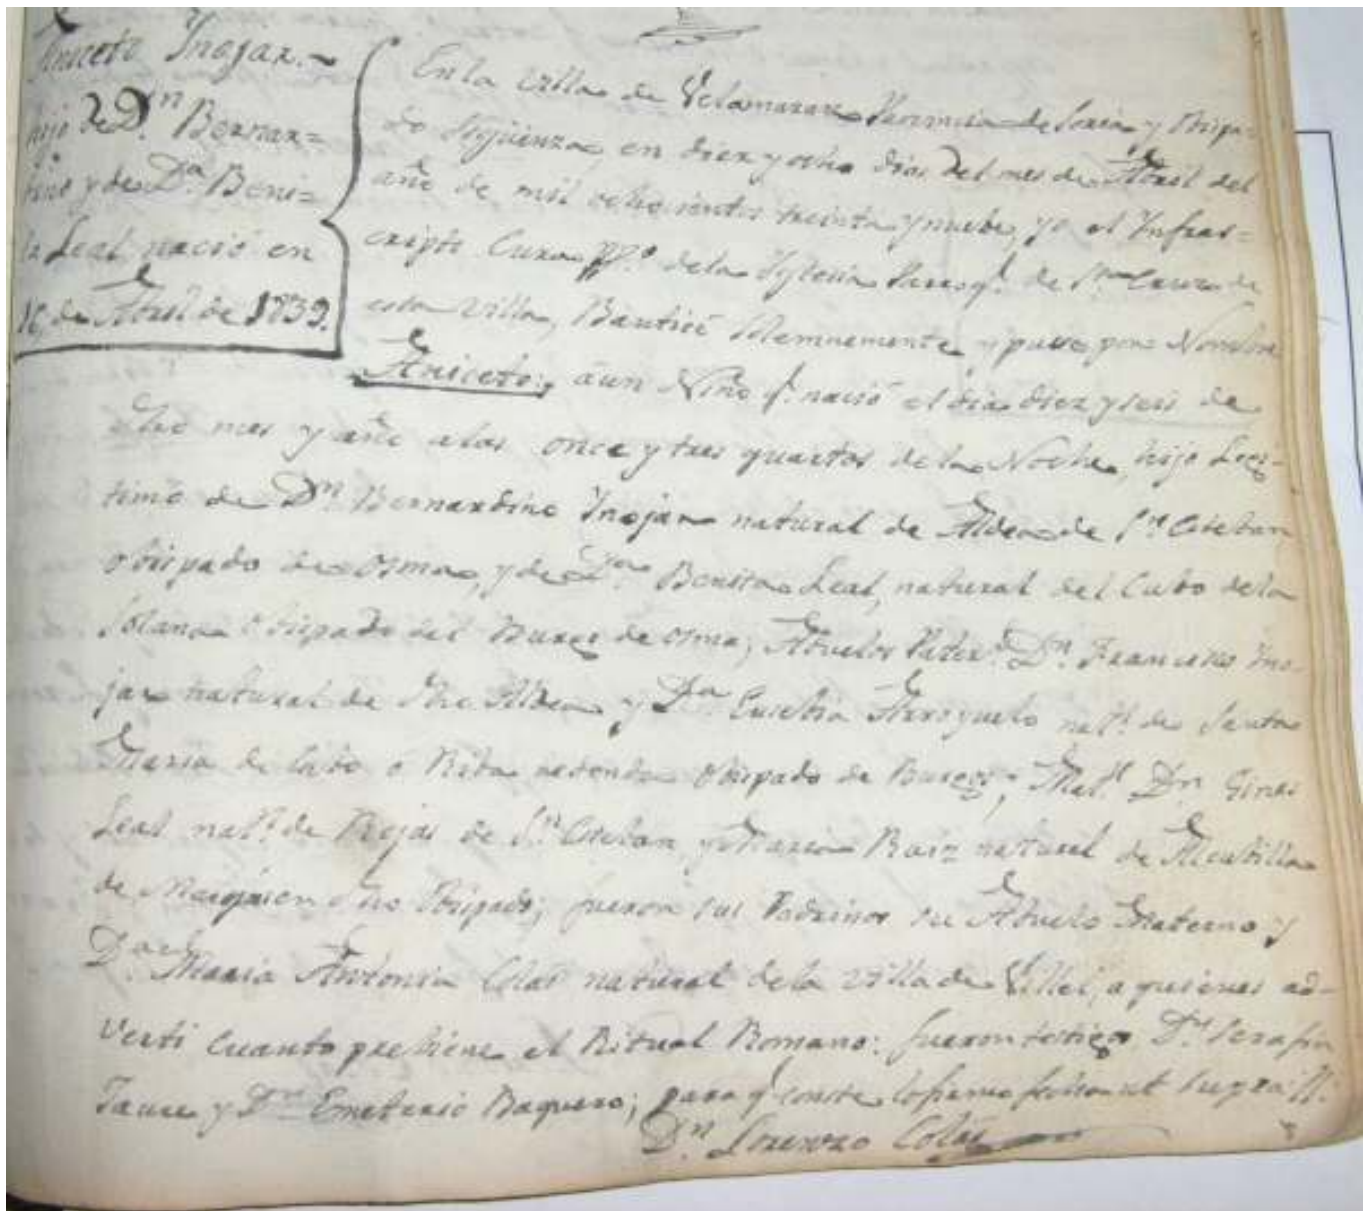 Aniceto Inojar.
hijo de Dn. Bernar=
dino y de Da. Beni=
ta Leal nació en
16, de Abril de 1839.
En la Villa de Velamazan Provincia de Soria y Obispa=
do Sigüenza, en diez y ocho dias del mes de Abril del
año de mil ochocientos treinta y nueve, yo el Infras=
cripto Cura Ppo. de la Yglesia Parroql. de Sta. Cruz de
esta Villa, Bauticé Solemnemente, y puse por Nombre
Aniceto; á un Niño q. nació el dia diez y seis de
dho mes y año a las once y tres quartos de la Noche, hijo Legi-
timo de Dn. Bernardino Inojar natural de Aldea de Sn. Esteban
Obispado de Osma, y de Da. Benita Leal, natural del Cubo de la
Solana Obispado del Burgo de Osma; Abuelos Pater.s Dn. Francisco Ino-
jar natural de dha Aldea y Da. Eusebia Arroyuelo natl. de Santa
Maria de Cubo o Riba redonda Obispado de Burgos; Mats. Dn. Gines
Leal natl. de Rejas de Sn. Esteban y Maria Raiz natural de Alcubilla
de dho Obispado; fueron sus Padrinos su Abuelo Materno; y
Da. Maria Antonia Colas natural de la Villa de Villel, a quienes ad-
verti cuanto previene el Ritual Romano: fueron testigos Dn. Serafin
y Dn. Emeterio Baquero; para q. conste lo firmo fecha ut supra
Dn. Lorenzo Colás